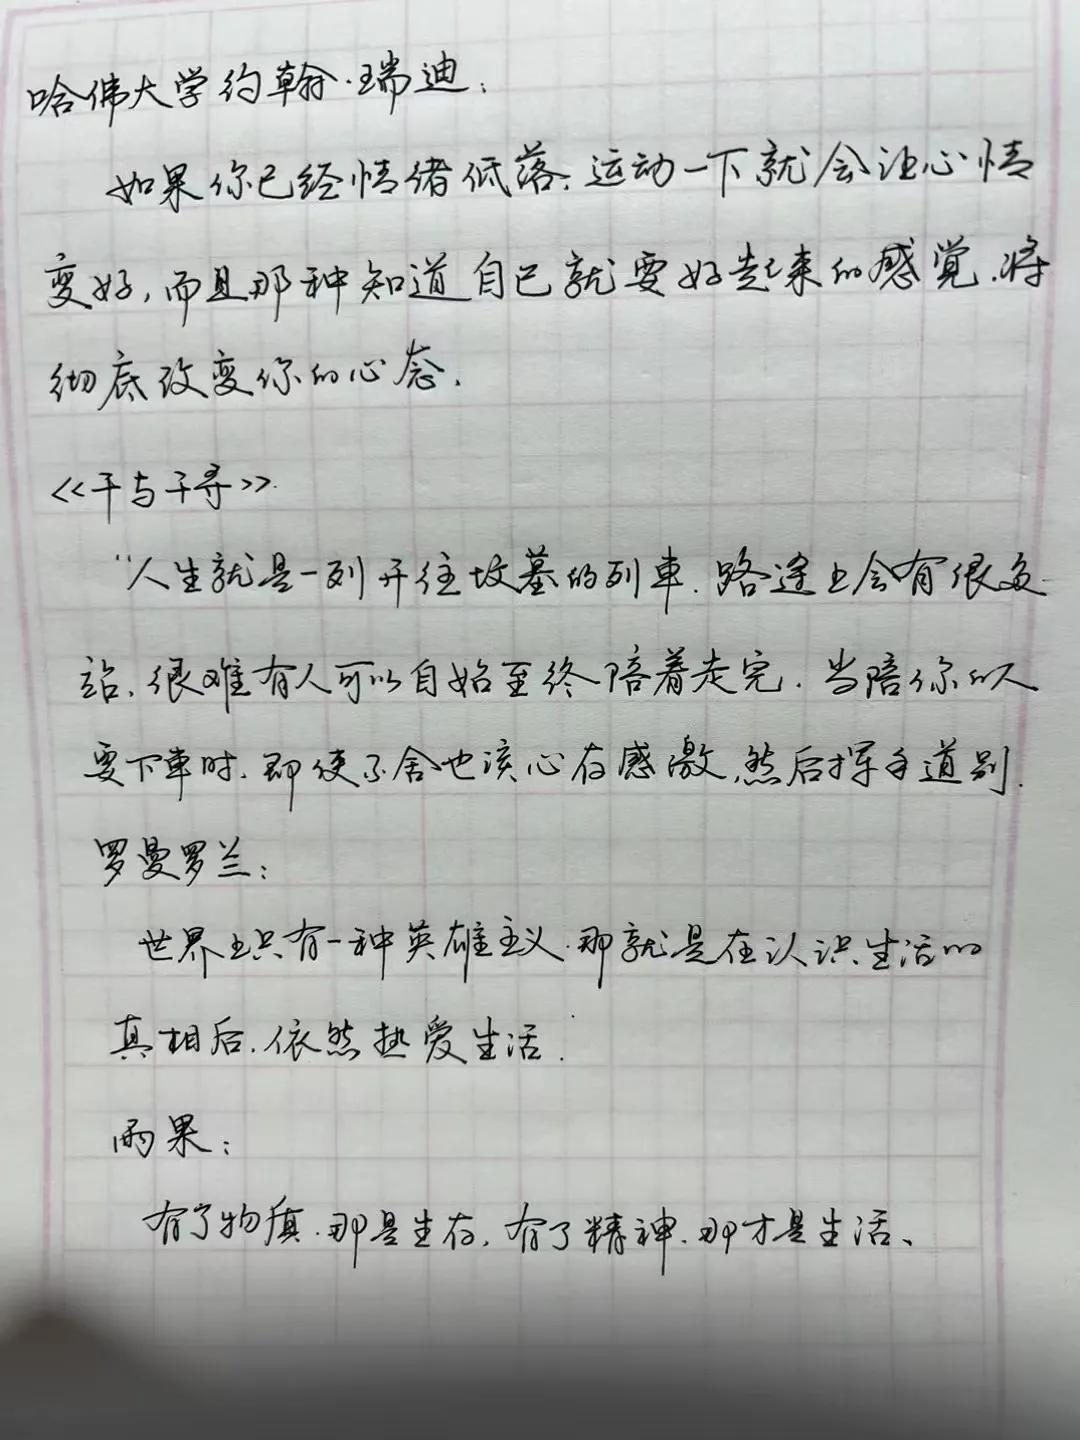 哈佛大学约翰·瑞迪:
如果你已经情绪低落,运动一下就会让心情
变好,而且那种知道自己就要好起来的感觉,将
彻底改变你的心态.
<<千与千寻>>
“人生就是一列开往坟墓的列車,路途上会有很多
站,很难有人可以自始至终陪着走完,当陪你的人
要下車时,即使不舍也该心存感激,然后挥手道别.
罗曼罗兰:
世界上只有一种英雄主义,那就是在认识生活的
真相后,依然热爱生活.
雨果:
有了物质,那是生存,有了精神,那才是生活、